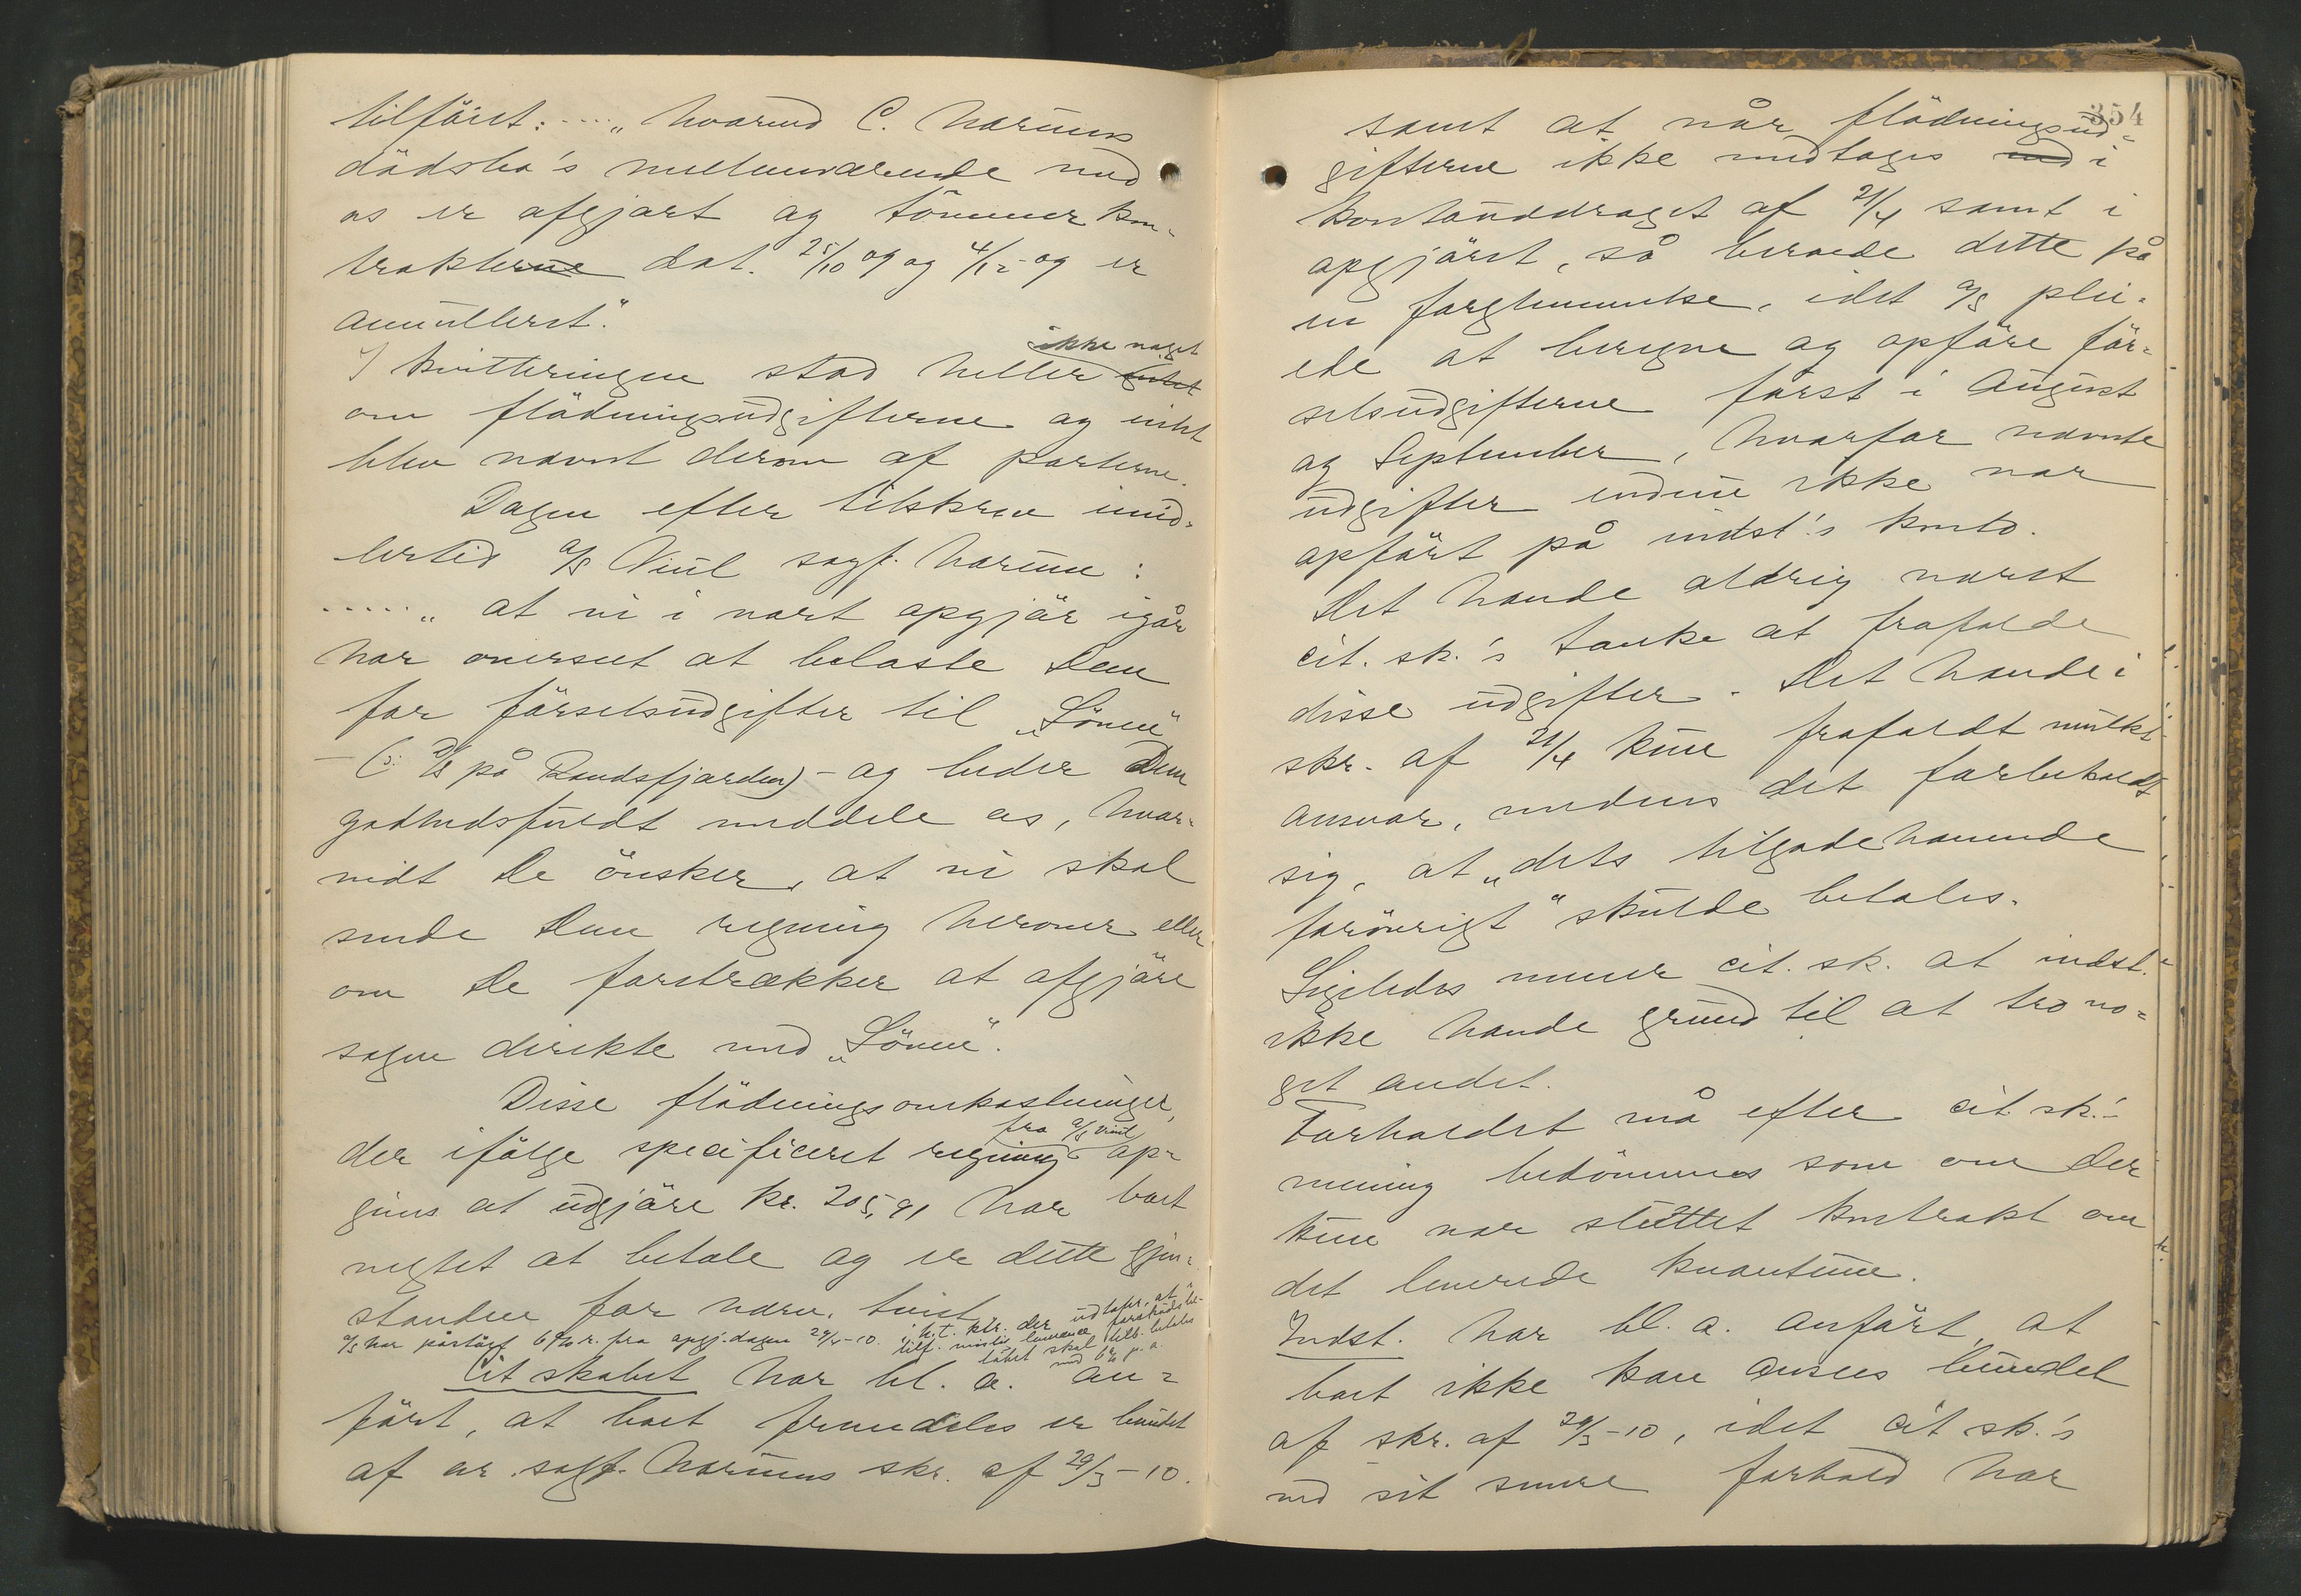 tilföiet: .... „hvormed C. Horüms
dödsbo's mellemværende med
os er afgjort og tömmerkon-
trakterne dat. 25/10 09 og 4/12-09 er
annülleret."
ikke noget
I kvitteringen stod heller intet
om flödningsüdgifterne og intet
blev nævnt derom af parterne.
Dagen efter tilskrev imid-
lertid a/s Viül sagf. Horüm:
..... „at vi i vort opgjör igår
har overseet at belaste Dem
for förselsüdgifter til „Lönen"
- (ɔ: D/S på Randsfjorden) - og beder Dem
godhedsfüldt meddele os, hvor-
vidt De önsker, at vi skal
sende Dem regning herover eller
om De foretrækker at afgjöre
sagen direkte med „Lönen".
Disse flödningsomkostninger,
fra a/s Viül
der ifölge specificeret regning op-
gives at üdgjöre kr. 205,91 har boet
negtet at betale og er dette gjen-
standen for nærv. tvist.
a/s har påstået 6% r. fra opgj.dagen 29/4-10. i h.t. ktr. der üdtaler, at
tilf. mislig leverance forsküdsbe-
löbet skal tilb. betales
med 6% p. a.
Citskabet har bl. a. an-
fört, at boet fremdeles er bündet
af or.sagf. Horüms skr. af 29/3-10.
354
samt at når flödningsüd-
gifterne ikke medtoges med i
kontoüddraget af 21/4 samt i
opgjöret, så beroede dette på
en forglemmelse, idet a/s plei-
ede at beregne og opföre för-
selsüdgifterne först i Aügüst
og September, hvorfor nævnte
üdgifter endnü ikke var
opfört på indst.'s konto.
Det havde aldrig været
cit.sk.'s tanke at frafalde
disse üdgifter. Det havde i
skr. af 21/4 kün frafaldt mülkt-
ansvar, medens det forbeholdt
sig, at „dets tilgodehavende
forövrigt" skülde betales.
Ligeledes mener cit.sk. at indst.
ikke havde gründ til at tro no-
get andet.
Forholdet må efter cit.sk.'s
mening bedömmes som om der
kün var slüttet kontrakt om
det leverede kvantüm.
Indst. har bl. a. anfört, at
boet ikke kan ansees bündet
af skr. af 29/3-10, idet cit.sk.'s
ved sit senere forhold har